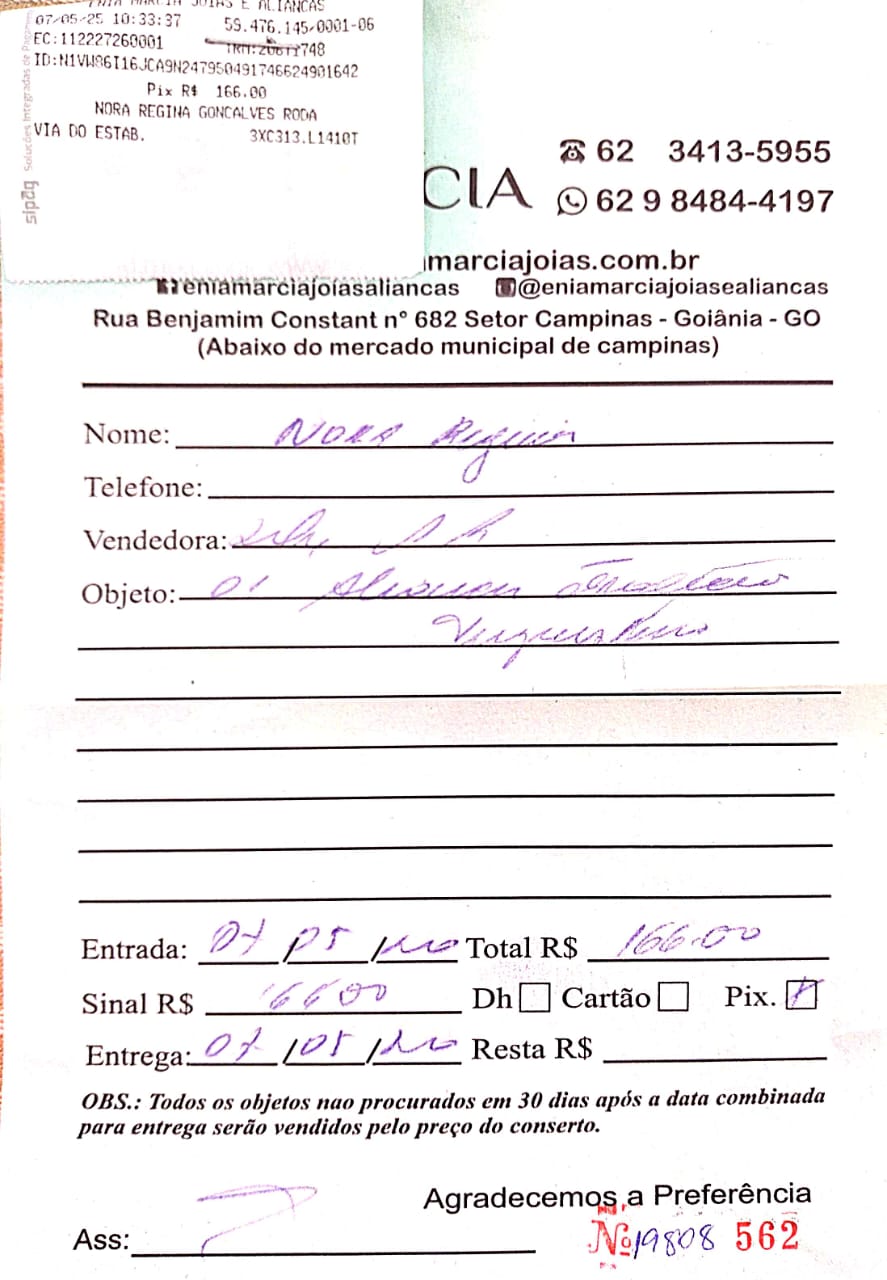 MARCIA JOIAS E ALIANCAS
07/05/25 10:33:37 59.476.145/0001-06
EC:112227260001
Pix R$ 166.00
NORA REGINA GONCALVES RODA
VIA DO ESTAB. 3XC313.L1410T
sipag Soluções Integradas de
CIA
62 3413-5955
62 9 8484-4197
marciajoias.com.br
eniamarciajoiasaliancas @eniamarciajoiasealiancas
Rua Benjamim Constant nº 682 Setor Campinas - Goiânia - GO
(Abaixo do mercado municipal de campinas)
Nome: Nora Regina
Telefone:
Vendedora:
Objeto: 01
Entrada: 07 / 05 / Total R$ 166.00
Sinal R$ 166 00 Dh Cartão Pix.
Entrega: 07 / 05 / Resta R$
OBS.: Todos os objetos nao procurados em 30 dias após a data combinada
para entrega serão vendidos pelo preço do conserto.
Agradecemos a Preferência
Ass: Nº 19808 562